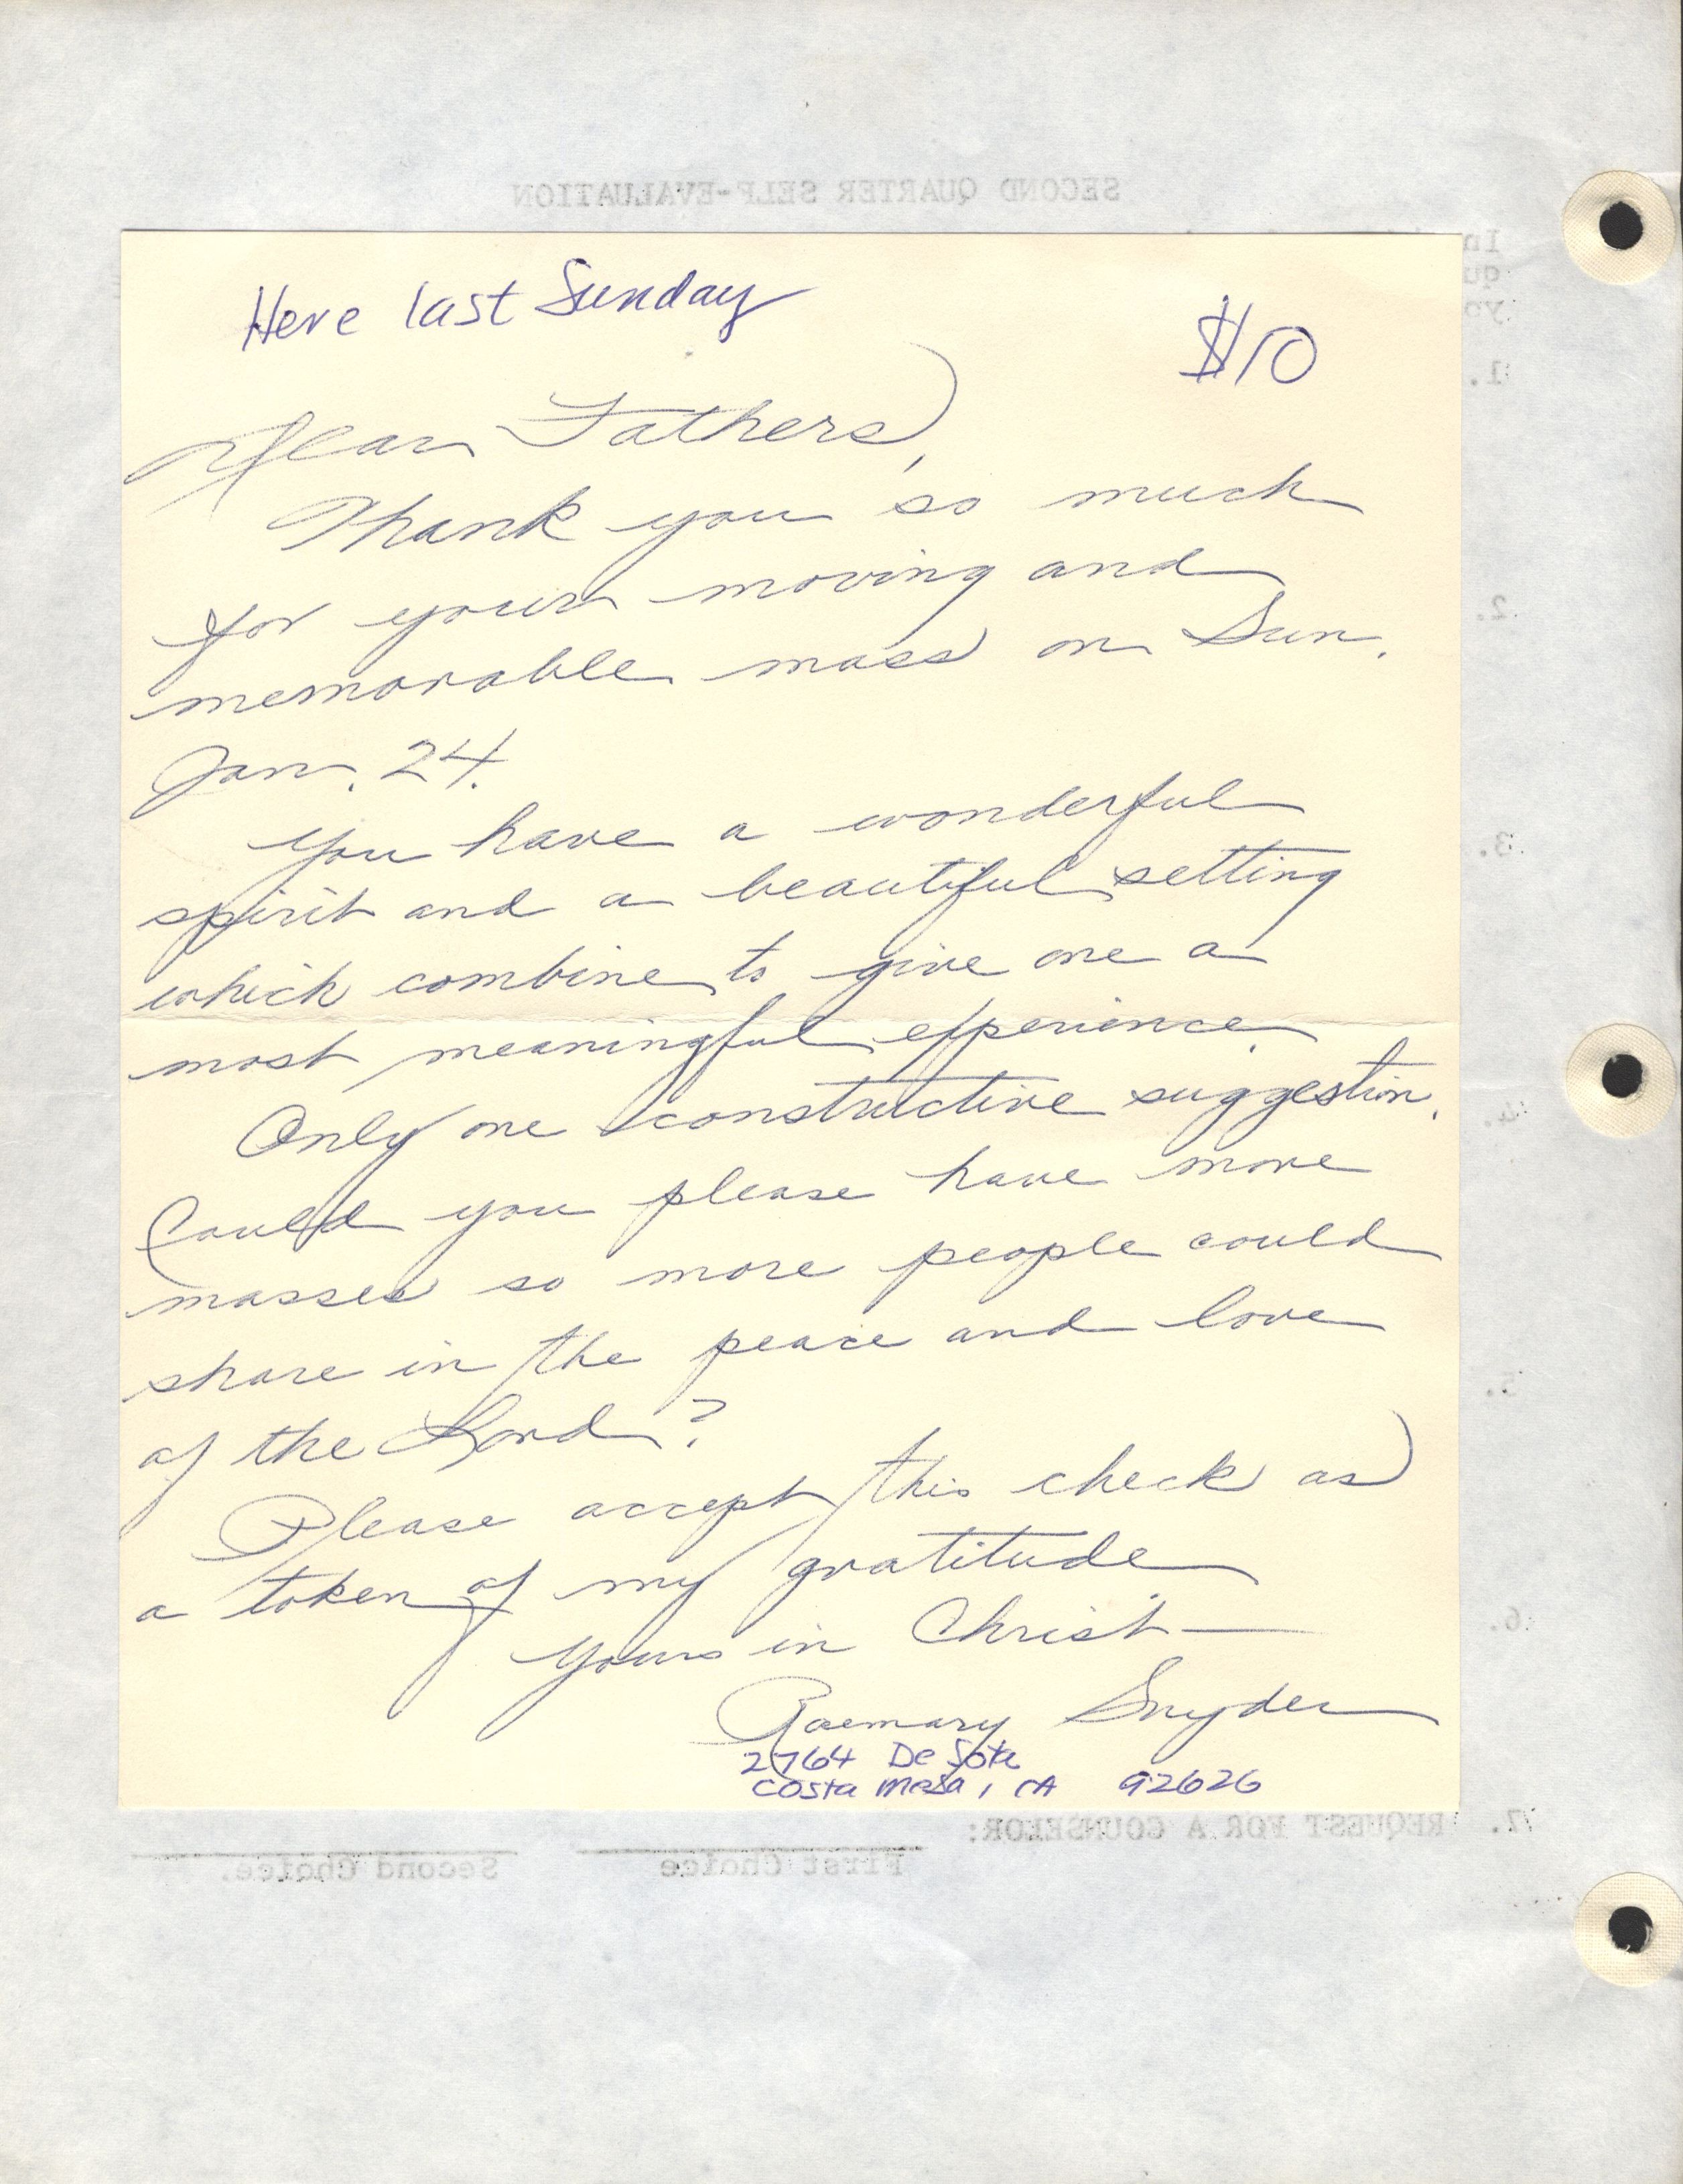 SECOND QUARTER SELF-EVALUATION
In
qu
yo
1.
2.
3.
4.
5.
6.
Here last Sunday
$10
Dear Fathers,
Thank you so much
for your moving and
memorable mass on Sun.
Jan. 24.
You have a wonderful
spirit and a beautiful setting
which combine to give one a
most meaningful experience.
Only one constructive suggestion.
Could you please have more
masses so more people could
share in the peace and love
of the Lord?
Please accept this check as
a token of my gratitude
Yours in Christ—
Rosemary Snyder
2764 De Soto
Costa Mesa, CA 92626
7. REQUEST FOR A COUNSELOR:
First Choice Second Choice.